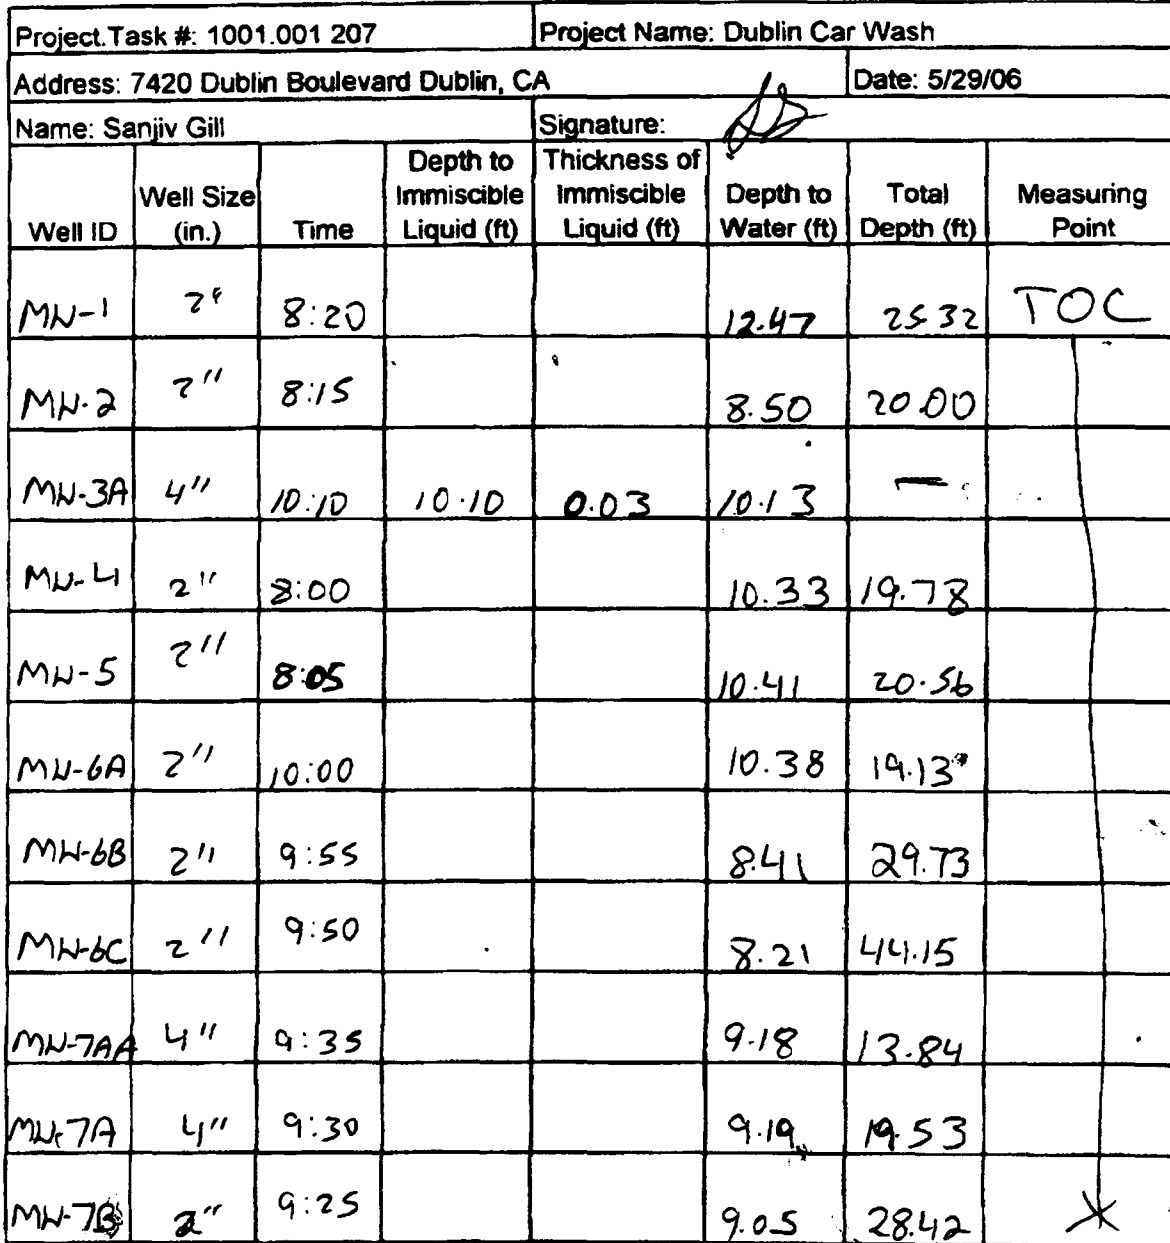 Project.Task #: 1001.001 207 Project Name: Dublin Car Wash
Address: 7420 Dublin Boulevard Dublin, CA Date: 5/29/06
Name: Sanjiv Gill Signature:
Well ID Well Size (in.) Time Depth to Immiscible Liquid (ft) Thickness of Immiscible Liquid (ft) Depth to Water (ft) Total Depth (ft) Measuring Point
MW-1 2" 8:20 12.47 25.32 TOC
MW-2 2" 8:15 8.50 20.00
MW-3A 4" 10:10 10.10 0.03 10.13 —
MW-4 2" 8:00 10.33 19.78
MW-5 2" 8:05 10.41 20.56
MW-6A 2" 10:00 10.38 19.13
MW-6B 2" 9:55 8.41 29.73
MW-6C 2" 9:50 8.21 44.15
MW-7AA 4" 9:35 9.18 13.84
MW-7A 4" 9:30 9.19 19.53
MW-7B 2" 9:25 9.05 28.42